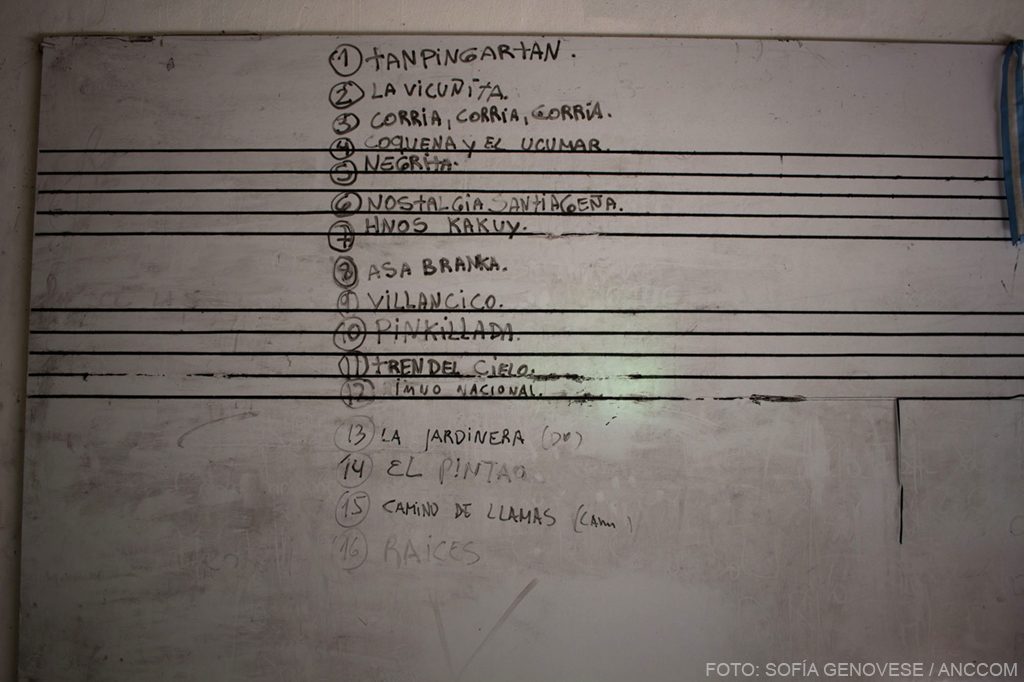 1 TANPINGARTAN.
2 LA VICUÑITA.
3 CORRIA, CORRIA, CORRÍA.
4 COQUENA Y EL UCUMAR.
5 NEGRITA.
6 NOSTALGIA SANTIAGEÑA.
7 HNOS KAKUY.
8 ASA BRANKA.
9 VILLANCICO.
10 PINKILLADA.
11 TREN DEL CIELO.
12 IMNO NACIONAL.
13 LA JARDINERA
14 EL PINTAO.
15 CAMINO DE LLAMAS
16 RAICES
FOTO: SOFÍA GENOVESE / ANCCOM